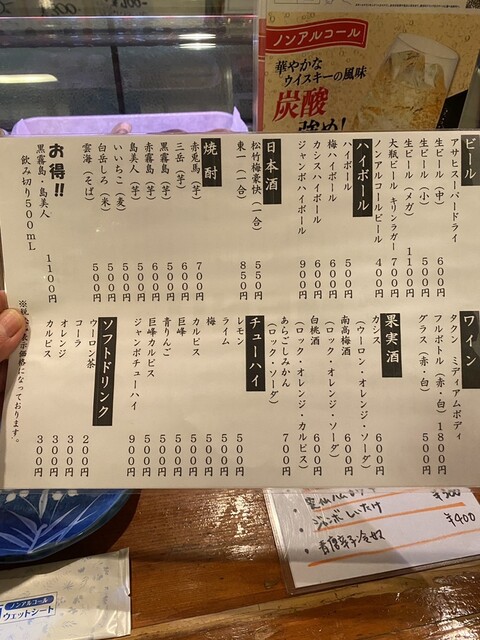 ノンアルコール
華やかな
ウイスキーの風味
炭酸
強め!
ビール
アサヒスーパードライ
生ビール(中) 600円
生ビール(小) 500円
生ビール(メガ) 1100円
大瓶ビール キリンラガー 700円
ノンアルコールビール 400円
ハイボール
ハイボール 500円
梅ハイボール 600円
カシスハイボール 600円
ジャンボハイボール 900円
日本酒
松竹梅豪快(一合) 550円
東一(一合) 850円
焼酎
赤兎馬(芋) 700円
三岳(芋) 600円
赤霧島(芋) 600円
黒霧島(芋) 500円
島美人(芋) 500円
いいちこ(麦) 500円
白岳しろ(米) 500円
雲海(そば) 500円
お得!!
黒霧島・島美人
飲み切り500mL 1100円
ワイン
タクン ミディアムボディ
フルボトル(赤・白) 1800円
グラス(赤・白) 500円
果実酒
カシス 600円
(ウーロン・オレンジ・ソーダ)
南高梅酒 600円
(ロック・オレンジ・ソーダ)
白桃酒 600円
(ロック・オレンジ・カルピス)
あらごしみかん 700円
(ロック・ソーダ)
チューハイ
レモン 500円
ライム 500円
梅 500円
カルピス 500円
青りんご 500円
巨峰 500円
巨峰カルピス 500円
ジャンボチューハイ 900円
ソフトドリンク
ウーロン茶 200円
コーラ 300円
オレンジ 300円
カルピス 300円
¥300
ジャンボしいたけ
¥400
青唐辛子冷奴
ノンアルコール
ウェットシート